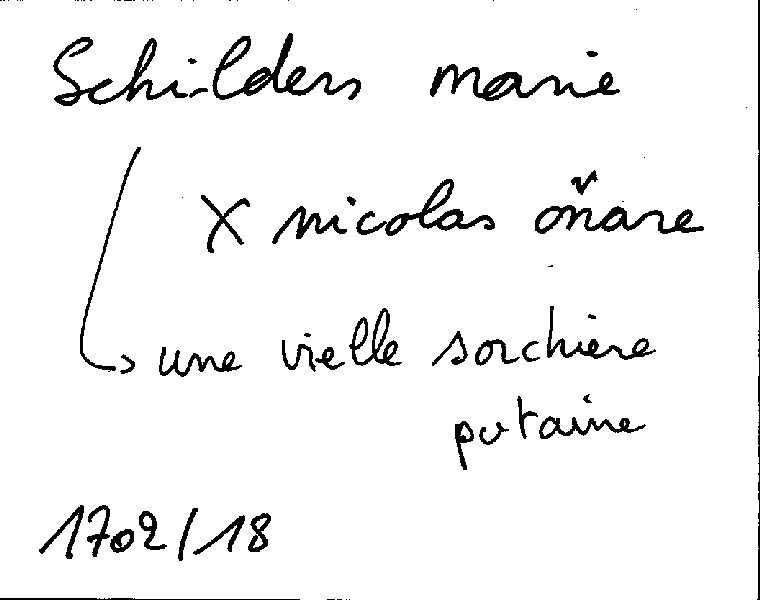 Schilders marie
X nicolas oňare
une vielle sorchiere
putaine
1702/18